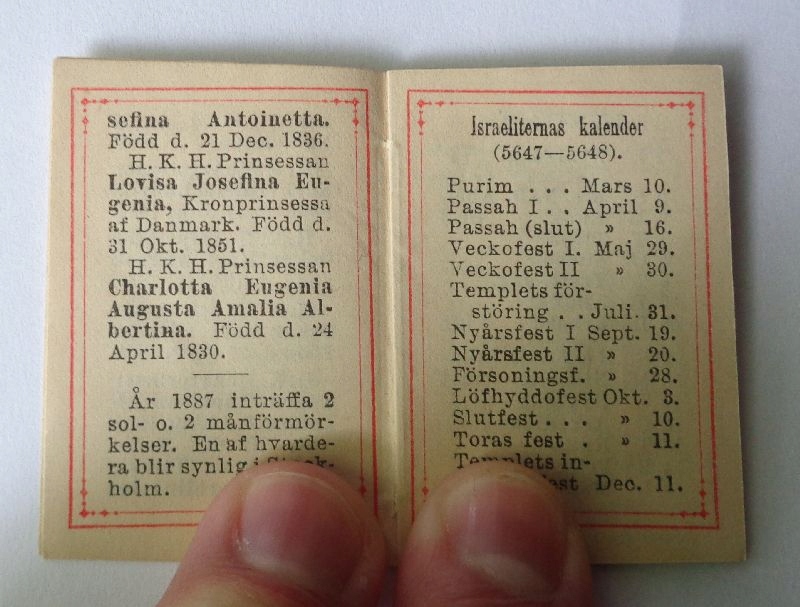 sefina Antoinetta.
Född d. 21 Dec. 1836.
H. K. H. Prinsessan
Lovisa Josefina Eu-
genia, Kronprinsessa
af Danmark. Född d.
31 Okt. 1851.
H. K. H. Prinsessan
Charlotta Eugenia
Augusta Amalia Al-
bertina. Född d. 24
April 1830.
År 1887 inträffa 2
sol- o. 2 månförmör-
kelser. En af hvarde-
ra blir synlig i
holm.
Israeliternas kalender
(5647—5648).
Purim . . . Mars 10.
Passah I . . April 9.
Passah (slut) » 16.
Veckofest I. Maj 29.
Veckofest II » 30.
Templets för-
störing . . Juli. 31.
Nyårsfest I Sept. 19.
Nyårsfest II » 20.
Försoningsf. » 28.
Löfhyddofest Okt. 3.
Slutfest . . . » 10.
Toras fest . » 11.
Templets in-
Dec. 11.